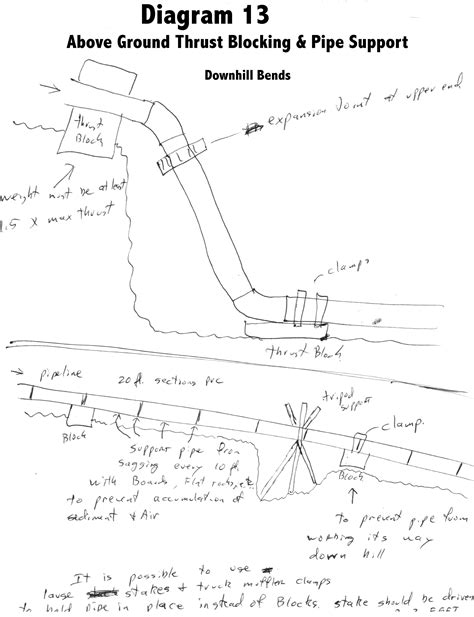 Diagram 13
Above Ground Thrust Blocking & Pipe Support
Downhill Bends
expansion Joint at upper end
thrust
Block
weight must be at least
1.5 x max thrust
clamps
thrust Block
pipeline
20 ft. sections pvc
tripod
support
clamp.
Block
support pipe from
sagging every 10 ft.
with Boards, Flat rocks, etc
to prevent accumulation of
sediment & Air
Block
to prevent pipe from
working its way
down hill
It is possible to use
large stakes & truck muffler clamps
to hold pipe in place instead of Blocks. stake should be driven
FEET